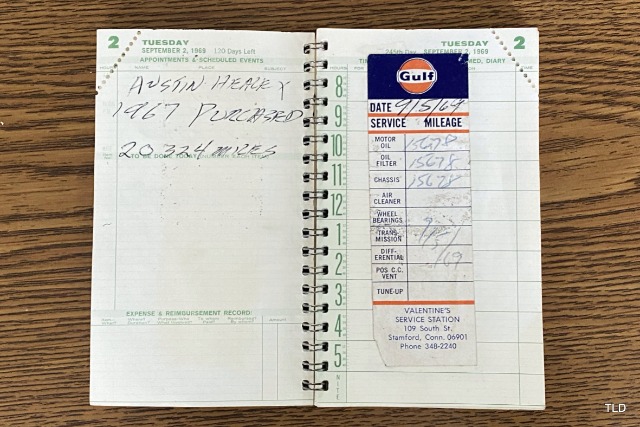 2 TUESDAY
SEPTEMBER 2, 1969 120 Days Left
APPOINTMENTS & SCHEDULED EVENTS
NAME PLACE
AUSTIN HEALEY
1967 PURCHASED
20324 MILES
TO BE DONE TODAY (NUMBER EACH ITEM)
EXPENSE & REIMBURSEMENT RECORD
Amount
245th Day TUESDAY 2
SEPTEMBER 2, 1969
DIARY
8
9
10
11
12
1
2
3
4
5
NITE
Gulf
DATE 9/5/69
SERVICE MILEAGE
MOTOR OIL 15678
OIL FILTER 15678
CHASSIS 15678
AIR CLEANER
WHEEL BEARINGS
TRANS-MISSION
DIFF-ERENTIAL
POS. C.C. VENT
TUNE-UP
VALENTINE'S
SERVICE STATION
109 South St.
Stamford, Conn. 06901
Phone 348-2240
TLD